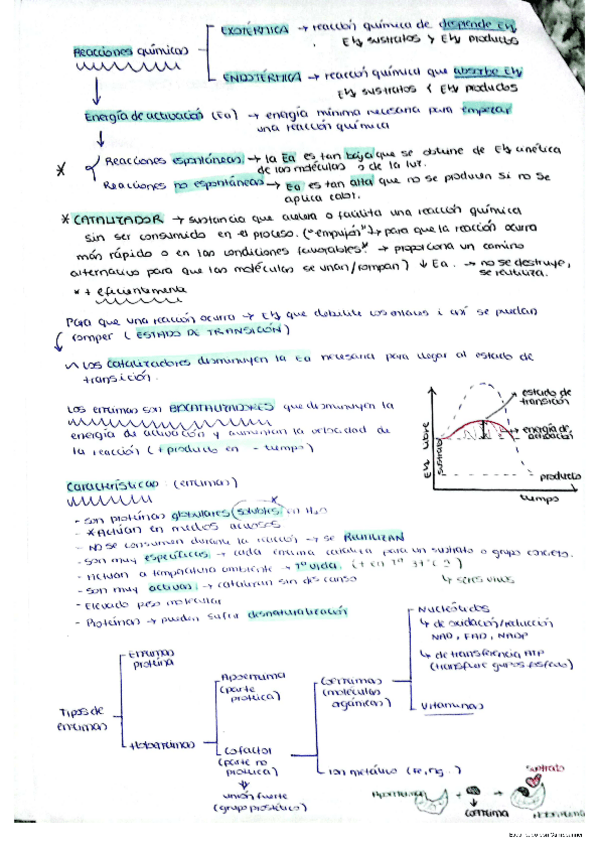 EXOTÉRMICA → reacción química de desprende Eq
Reacciones químicas
Eq sustratos > Eq productos
ENDOTÉRMICA → reacción química que absorbe Eq
Eq sustratos < Eq productos
Energía de activación (Ea) → energía mínima necesaria para empezar
una reacción química
* Reacciones espontáneas → la Ea es tan baja que se obtiene de Eq cinética
de las moléculas o de la luz.
Reacciones no espontáneas → Ea es tan alta que no se producen si no se
aplica calor.
* CATALIZADOR → sustancia que acelera o facilita una reacción química
sin ser consumido en el proceso. ("empujón") → para que la reacción ocurra
más rápido o en las condiciones favorables* → proporciona un camino
alternativo para que las moléculas se unan/rompan) ↓ Ea. → no se destruye,
se reutiliza.
* + eficientemente
Para que una reacción ocurra → Eq que debilite los enlaces i así se puedan
romper (ESTADO DE TRANSICIÓN)
Los catalizadores disminuyen la Ea necesaria para llegar al estado de
transición.
Los enzimas son BIOCATALIZADORES que disminuyen la
energía de activación y aumentan la velocidad de
la reacción (+ producto en - tiempo)
estado de
transición
energía de
activación
Eq libre
sustrato
producto
tiempo
Características: (enzimas)
- Son proteínas globulares (solubles) en H2O
- * Actúan en medios acuosos
- NO se consumen durante la reacción → se REUTILIZAN
- Son muy específicas → cada enzima cataliza para un sustrato o grupo concreto.
- Actúan a temperatura ambiente → Tª vida.
↳ seres vivos
- Son muy activas → catalizan sin descanso
- Elevado peso molecular
- Proteínas → pueden sufrir desnaturalización
Tipos de
enzimas
Enzimas
proteína
Holoenzimas
Apoenzima
(parte
proteica)
Cofactor
(parte no
proteica)
unión fuerte
(grupo prostético)
Coenzimas
(moléculas
orgánicas)
Ion metálico (Fe, Mg..)
Nucleótidos
↳ de oxidación/reducción
NAD, FAD, NADP
↳ de transferencia ATP
(transfiere grupos fosfato)
Vitaminas
Apoenzima
+
coenzima
sustrato
Holoenzima